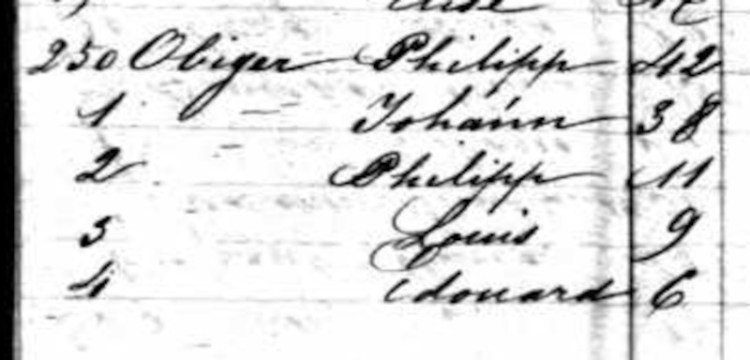 250 Obiger Philipp 42
1 " Johann 38
2 Philipp 11
3 Louis 9
4 Edouard 6